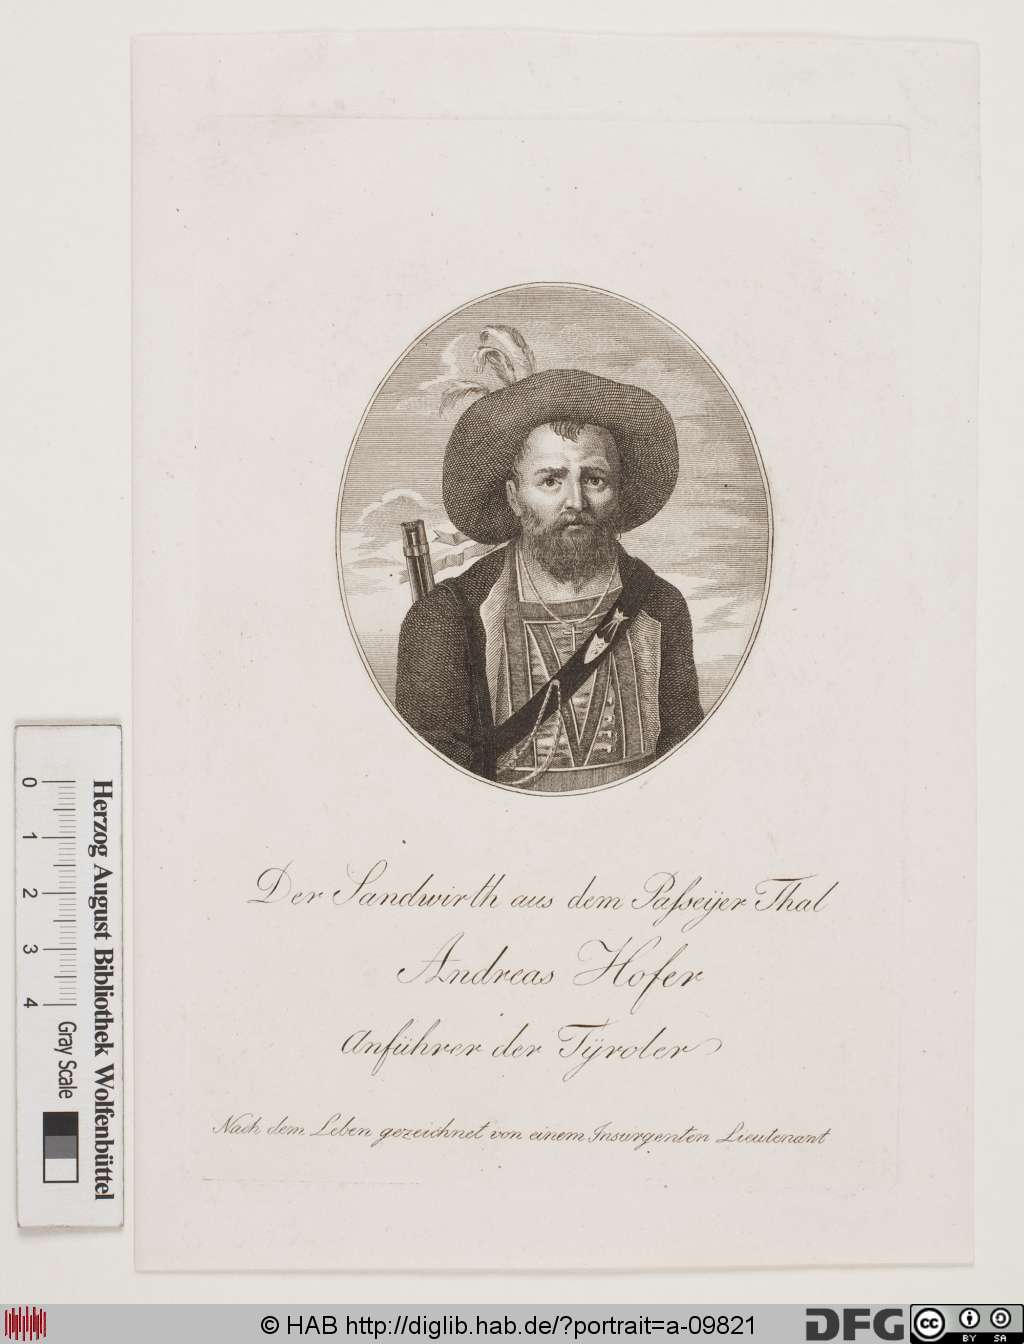 Der Sandwirth aus dem Paſseÿer Thal
Andreas Hofer
Anführer der Tÿroler
Nach dem Leben gezeichnet von einem Insurgenten Lieutenant
Herzog August Bibliothek Wolfenbüttel
0 1 2 3 4 Gray Scale
© HAB http://diglib.hab.de/?portrait=a-09821
DFG
cc BY SA